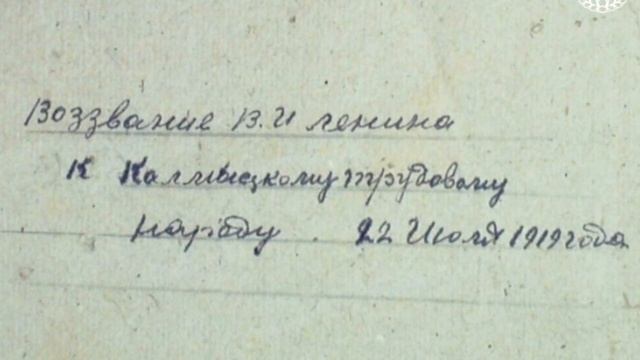 Воззвание В.И Ленина
К Калмыцкому трудовому
народу. 22 Июля 1919 года